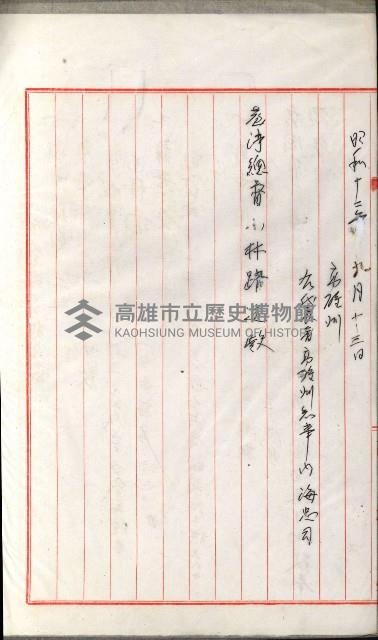 昭和十三年九月十三日
高雄州
右代表者高雄州知事内海忠司
臺湾總督小林躋造殿
高雄市立歷史博物館
KAOHSIUNG MUSEUM OF HISTORY